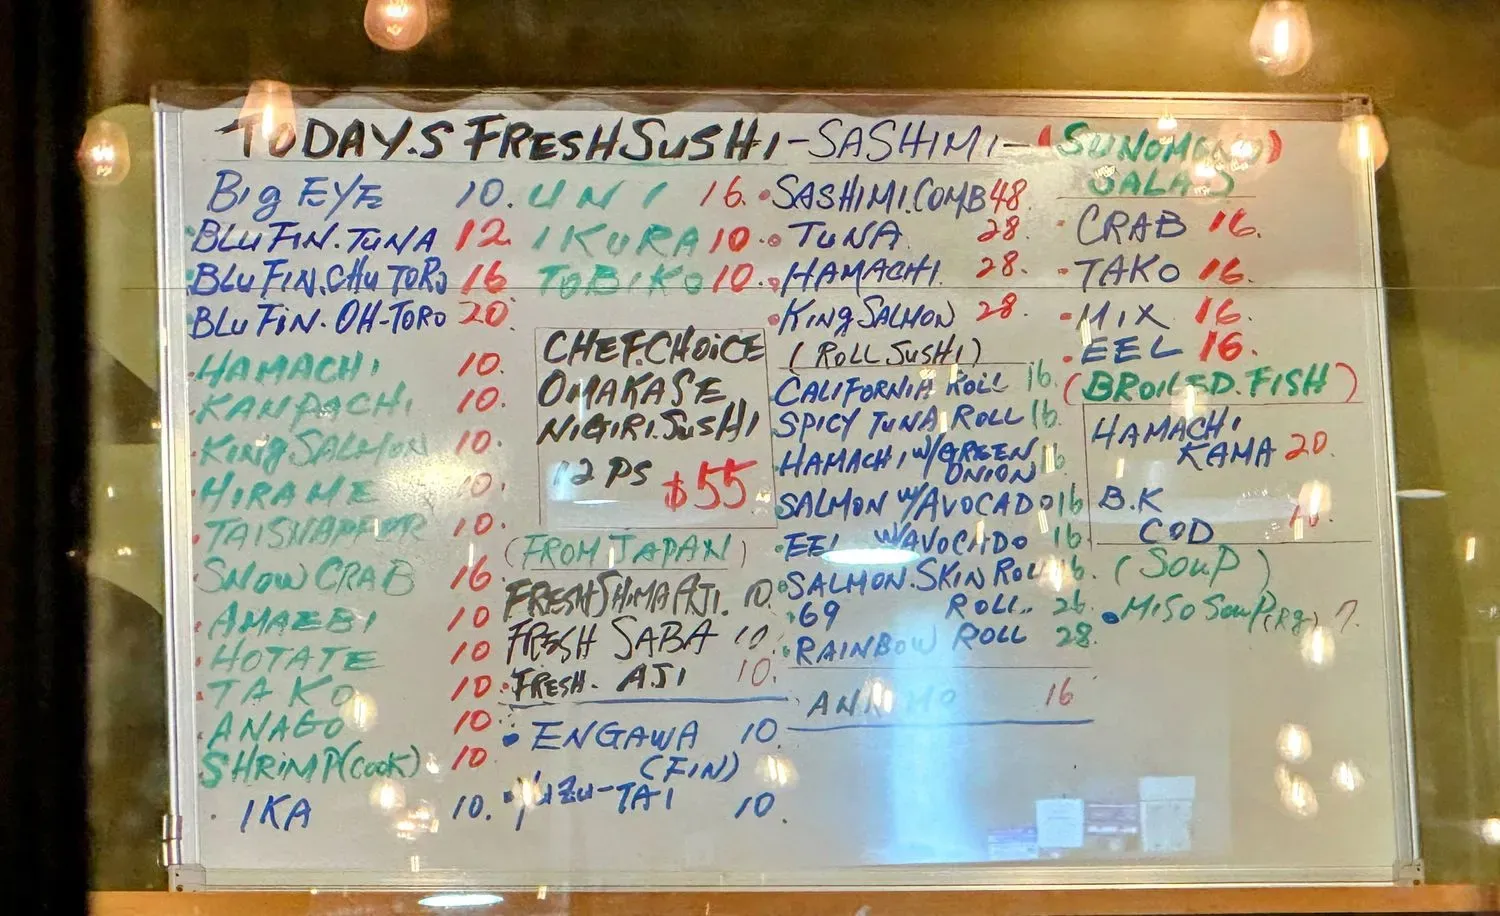 TODAY.S FRESH SUSHI - SASHIMI - (SUNOMONO)
SALAD
Big EYE 10.
BLUFIN.TUNA 12
BLUFIN.CHUTORO 16
BLUFIN.OH-TORO 20.
HAMACHI 10.
KANPACHI 10.
KingSALMON 10.
HIRAME 10.
TAISNAPPER 10.
SNOWCRAB 16
AMAEBI 10
HOTATE 10
TAKO 10
ANAGO 10
SHRIMP(COOK) 10
IKA 10.
UNI 16.
IKURA 10
TOBIKO 10.
CHEF.CHOICE
OMAKASE
NIGIRI.SUSHI
12 PS $55
(FROM JAPAN)
FRESH SHIMA AJI. 10.
FRESH SABA 10.
FRESH. AJI 10.
ENGAWA 10
(FIN)
YUZU-TAI 10.
SASHIMI.COMB 48
TUNA 28.
HAMACHI. 28.
KingSALMON 28.
(ROLL SUSHI)
CALIFORNIA ROLL 16.
SPICY TUNA ROLL 16.
HAMACHI W/GREEN
ONION 16
SALMON W/AVOCADO 16
EEL W/AVOCADO 16
SALMON.SKIN ROLL 16.
69 ROLL. 26
RAINBOW ROLL 28.
16
CRAB 16.
TAKO 16.
MIX 16.
EEL 16.
(BROILED.FISH)
HAMACHI
KAMA 20.
B.K
COD
(SOUP)
MISO SOUP(Rg) 7.